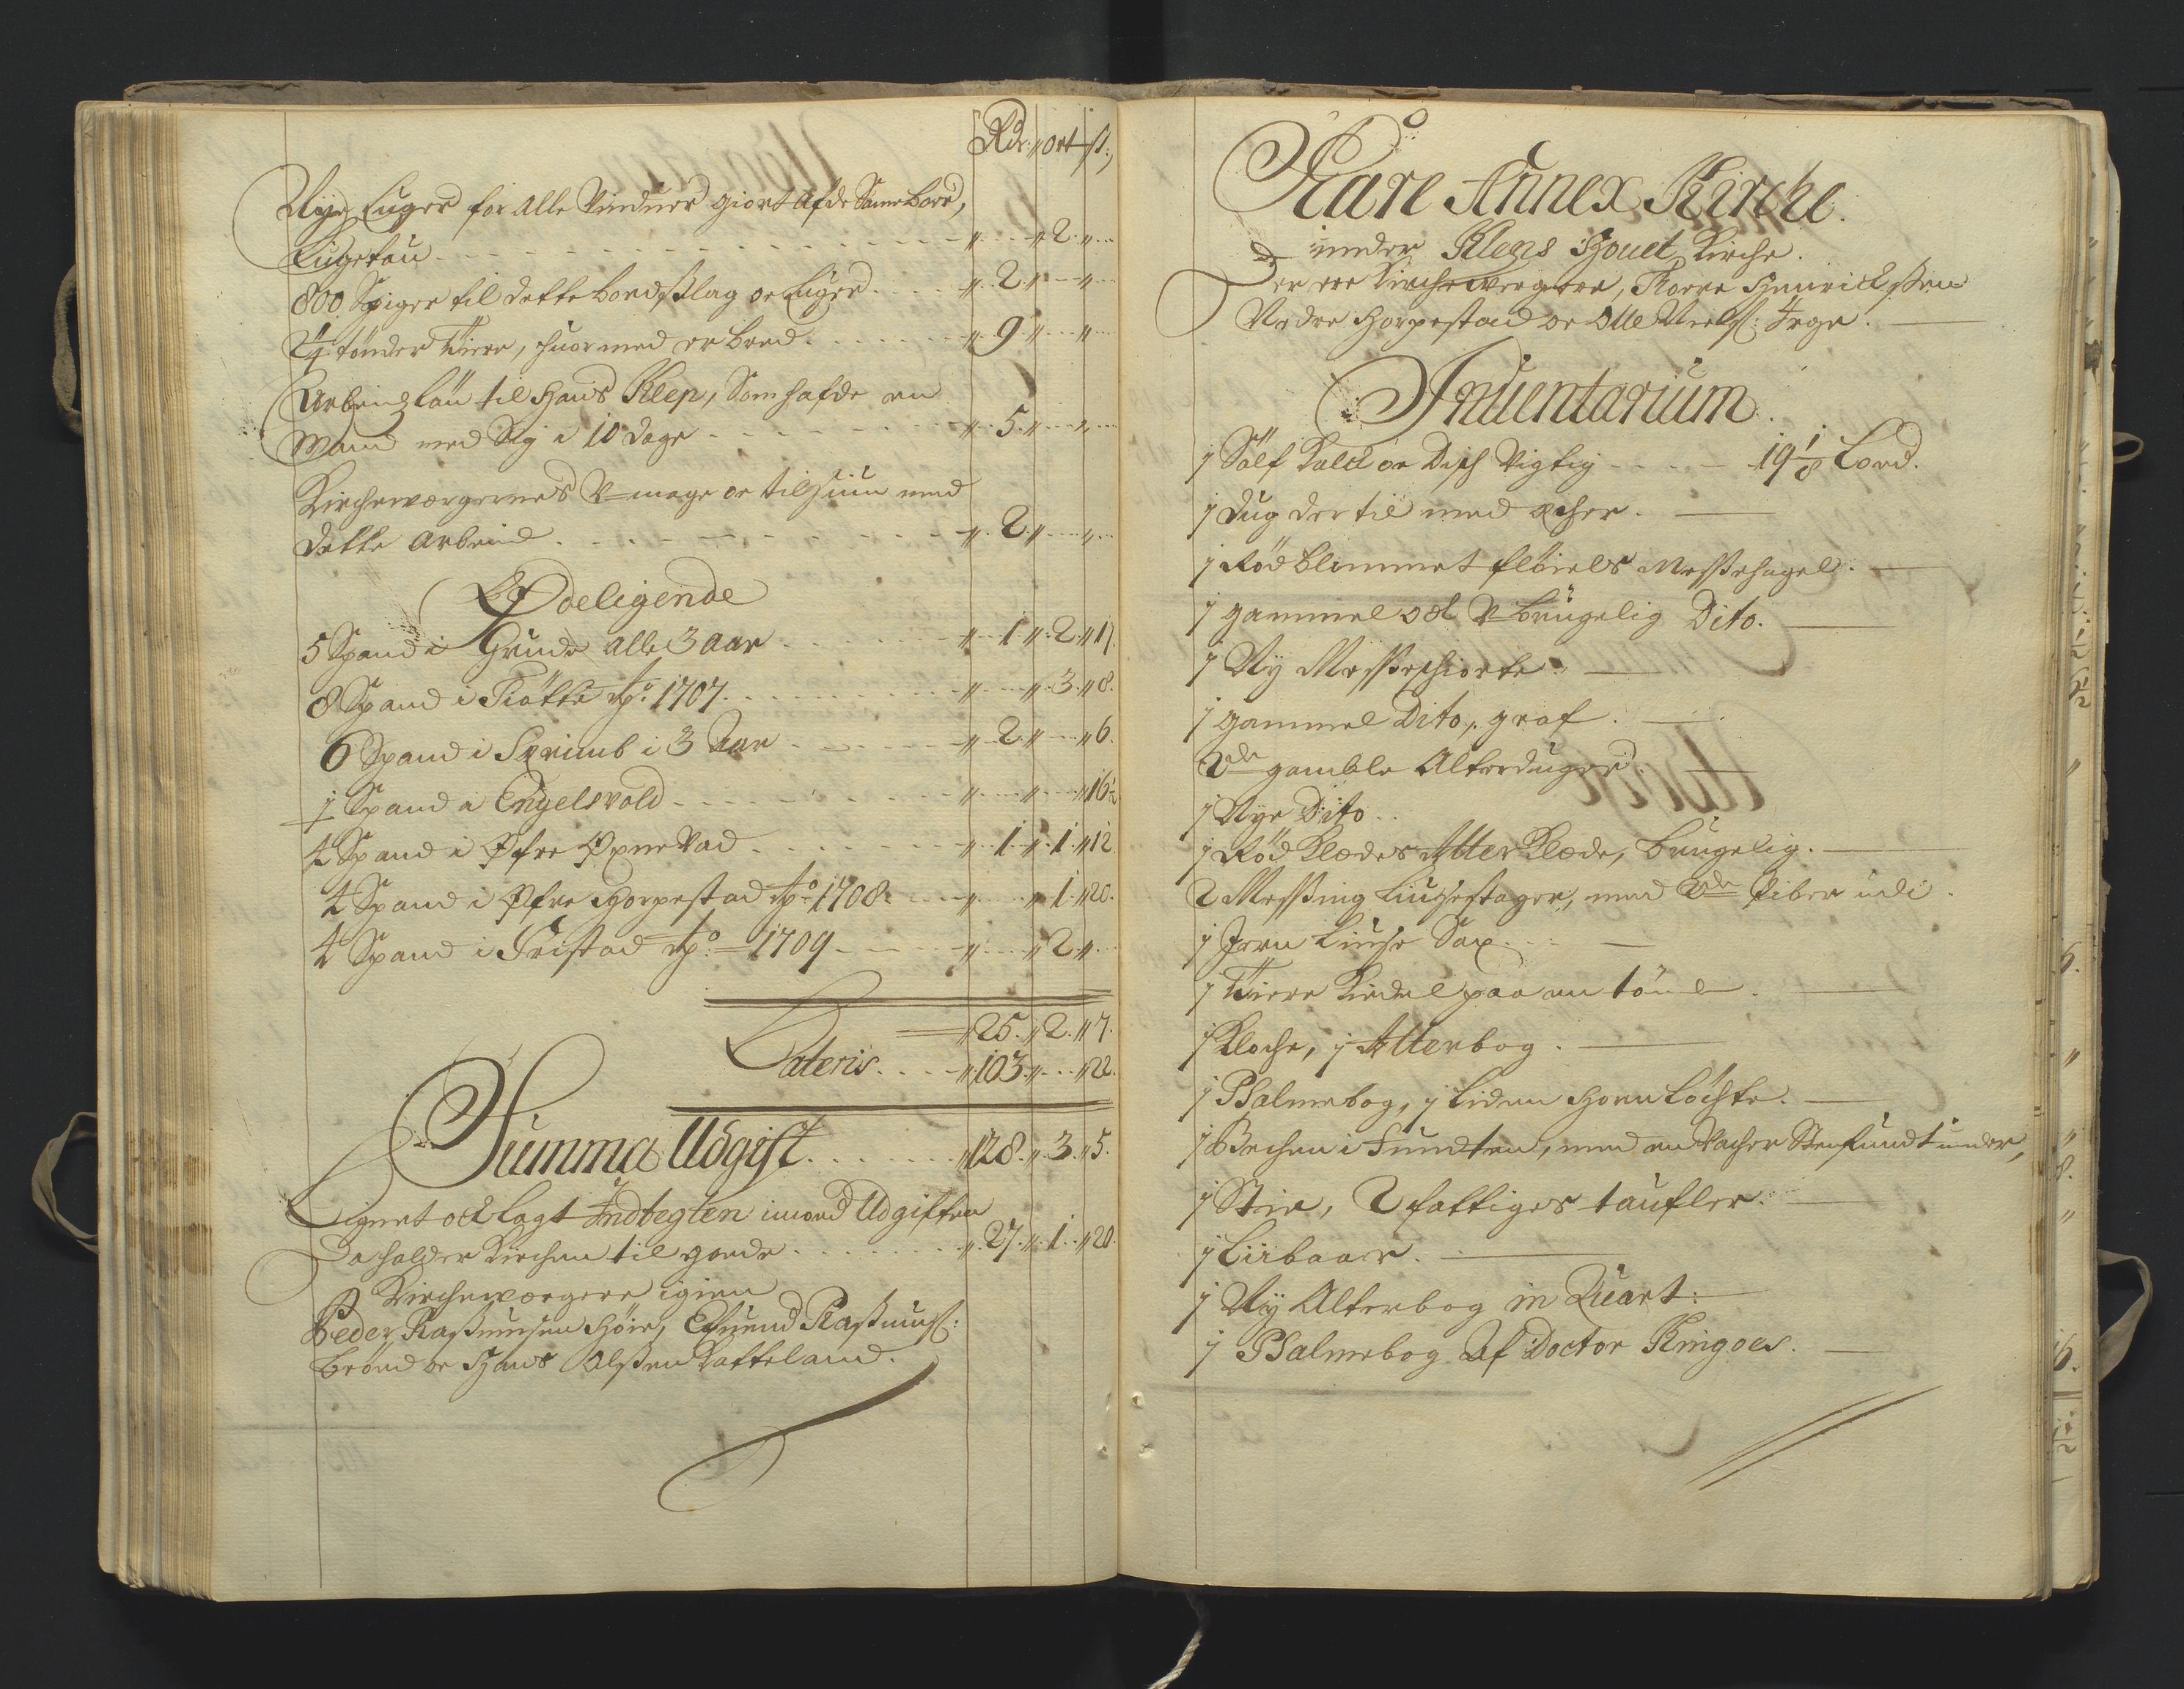 Rdr. ort ß:
Nye Luger for Alle Vinduer giort Af de Samme bord,
Lugetau - - - " " 2 "
800 Spiger til dette bordslag oc Luger - - " 2 " "
4 tønder Tiere, huormed er bred - - - " 9 " "
Arbeidzløn til Hans Klep, Som hafde en
Mand med Sig i 10 dage - - - " 5 " "
Kirckeværgernes U-mage oc tilsiun med
dette Arbeid - - - " 2 " "
Ødeligende
5 Spand i Grude Alle 3 Aar - - " 1 " 2 " 17.
8 Spand i Tiøtte Ao: 1707. - - " " 3 " 8.
6 Spand i Skrimb i 3 Aar - - " 2 " " 6.
1 Spand i Engelsvold - - - " " " 16½
4 Spand i Øfre Øxnevad - - - " 1 " 1 " 12.
4 Spand i Øfre Horpestad Ao: 1708 - - " " 1 " 20.
4 Spand i Friestad Ao: 1709 - - " " 2 "
" 25. " 2. " 7.
Lateris - - " 103. " " 22.
Summa Udgift - - - " 128. " 3. " 5.
Lignet och lagt Indtegten imod Udgiften
Da holder Kircken til gode - - - " 27. " 1. " 20.
Kirckeværgere igien
Peder Raßmusen Høie, Efuend Raßmusß:
Brønd oc Hans Olßen Latteland.
Kare Annex Kircke.
under Kleps Houet Kircke.
Der ere Kirckewergere, Tore Henrickßen
Nedre Horpestad oc Olle Nielß: Erge.
Inuentarium.
1 Sølf Kalck oc Disch Vigtig - - - 19 1/8 Lood.
1 Dug der til med Æsker.
1 Rød blommet fløiels Messehagel.
1 gammel och U-brugelig Dito.
1 Ny Messeschiorte.
1 gammel Dito, graf.
2de gamble Alterduger.
1 Nye Dito.
1 Rød Klædes Alter Klæde, brugelig.
2 Messing Liusestager, med 2de Piber udi.
1 Jern Liuse Sax.
1 Tiere Kiedel paa en tønde.
1 Klocke, 1 Alterbog.
1 Psalmebog, 1 liden Horn Løchte.
1 Becken i Funten, med en Vacker Sten funt under,
1 Stie, 2 fattiges taufler.
1 Liibaar.
1 Ny Alterbog in Quart.
1 Psalmebog Af Doctor Kingoes.